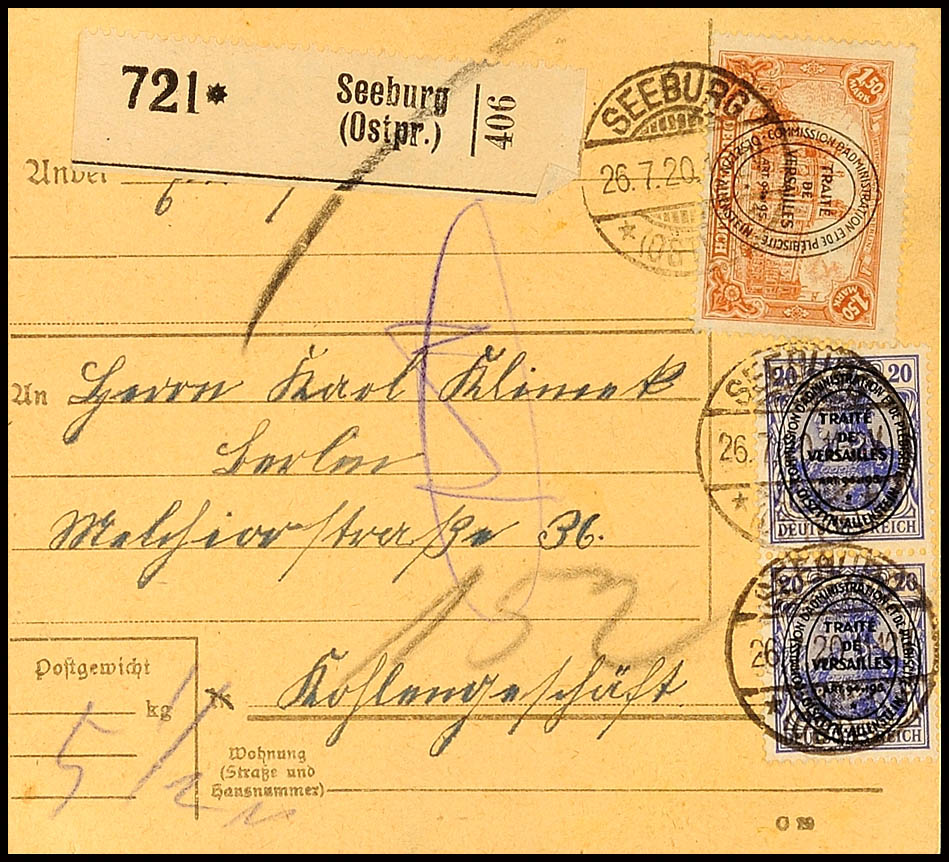 721*
Seeburg
(Ostpr.)
406
SEEBURG
26.7.20.1
* (OST
1.50
MARK
COMMISSION D'ADMINISTRATION ET DE PLÉBISCITE
TRAITÉ
DE
VERSAILLES
ART. 94 et 95
1.50
MARK
An Herrn Karl Klimek
Berlin
Melchiorstraße 36.
152
Kohlengeschäft
SEEBURG
26.7.20.
20 20
COMMISSION D'ADMINISTRATION ET DE PLÉBISCITE OLSZTYN ALLENSTEIN
TRAITÉ
DE
VERSAILLES
ART. 94 et 95
DEUTSCHES REICH
SEEBURG
26.7.20.
20 20
COMMISSION D'ADMINISTRATION ET DE PLÉBISCITE OLSZTYN ALLENSTEIN
TRAITÉ
DE
VERSAILLES
ART. 94 et 95
DEUTSCHES REICH
Postgewicht
kg
5 1/2
Wohnung
(Straße und
Hausnummer)